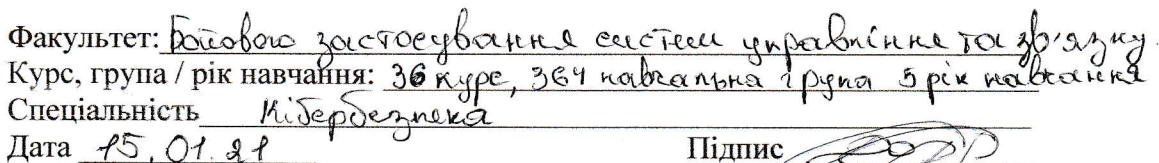 Факультет: Бойового застосування систем управління та зв'язку
Курс, група / рік навчання: 36 курс, 364 навчальна група 5 рік навчання
Спеціальність Кібербезпека
Дата 15.01.21 Підпис